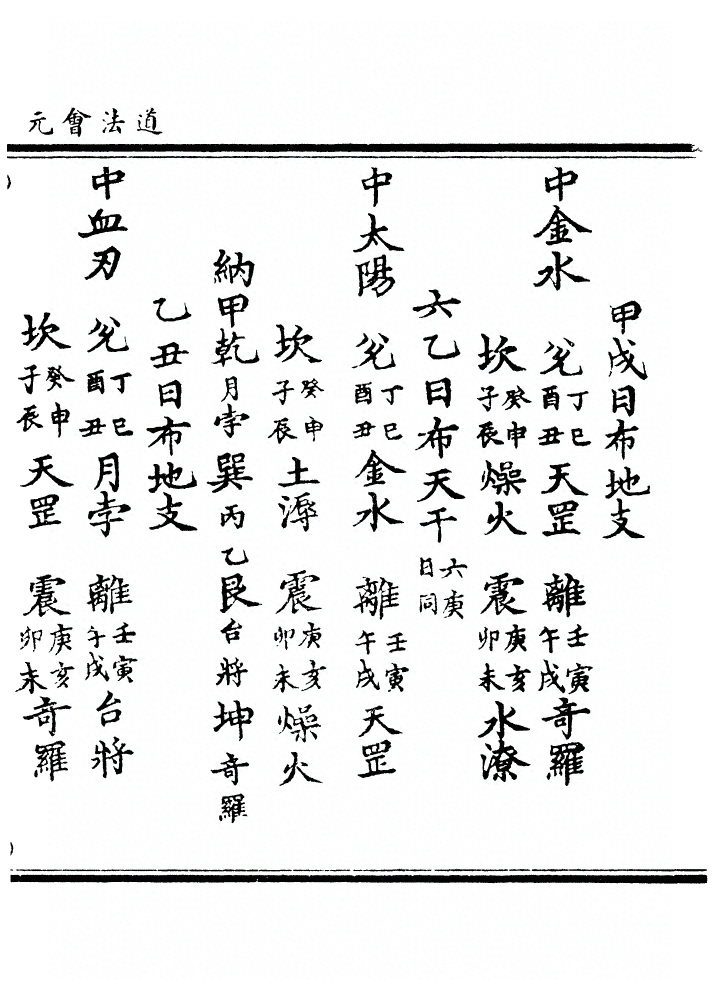 道法會元
甲戌日布地支
中金水 兌丁巳酉丑天罡 離壬寅午戌奇羅
坎癸申子辰燥火 震庚亥卯未水潦
六乙日布天干六庚日同
中太陽 兌丁巳酉丑金水 離壬寅午戌天罡
坎癸申子辰土溽 震庚亥卯未燥火
納甲乾月孛巽丙乙艮台將坤奇羅
乙丑日布地支
中血刃 兌丁巳酉丑月孛 離壬寅午戌台將
坎癸申子辰天罡 震庚亥卯未奇羅